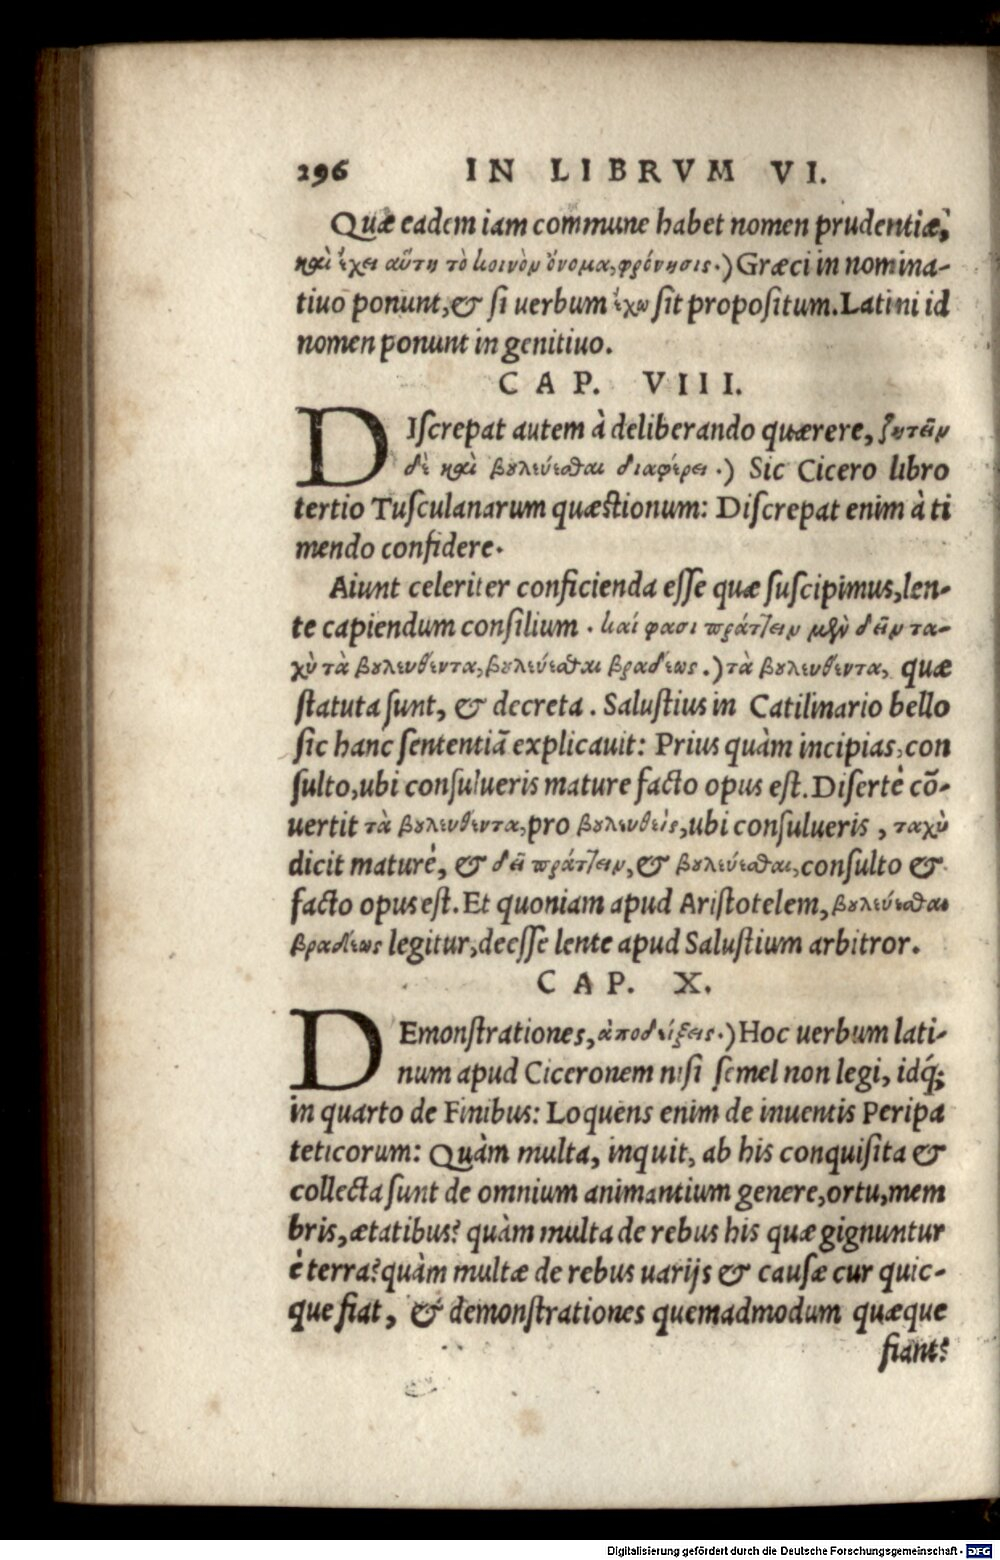 296 IN LIBRVM VI.
Quæ eadem iam commune habet nomen prudentiæ,
καὶ ἔχει αὕτη τὸ κοινὸν ὄνομα, φρόνησις.) Græci in nomina-
tiuo ponunt, & si uerbum ἔχω sit propositum. Latini id
nomen ponunt in genitiuo.
CAP. VIII.
DIſcrepat autem à deliberando quærere, ζητεῖν
δὲ καὶ βουλεύεσθαι διαφέρει.) Sic Cicero libro
tertio Tuſculanarum quæstionum: Diſcrepat enim à ti
mendo confidere.
Aiunt celeriter conficienda eſſe quæ ſuſcipimus, len-
te capiendum conſilium. καί φασι πράττειν μὲν δεῖν τα-
χὺ τὰ βουλευθέντα, βουλεύεσθαι βραδέως.) τὰ βουλευθέντα, quæ
ſtatuta ſunt, & decreta. Saluſtius in Catilinario bello
ſic hanc ſententiā explicauit: Prius quàm incipias, con
ſulto, ubi conſulueris mature facto opus eſt. Diſertè cō-
uertit τὰ βουλευθέντα, pro βουλευθεὶς, ubi conſulueris, ταχὺ
dicit maturè, & δεῖ πράττειν, & βουλεύεσθαι, conſulto &
facto opus eſt. Et quoniam apud Ariſtotelem, βουλεύεσθαι
βραδέως legitur, deeſſe lente apud Saluſtium arbitror.
CAP. X.
DEmonſtrationes, ἀποδείξεις.) Hoc uerbum lati-
num apud Ciceronem niſi ſemel non legi, idq́;
in quarto de Finibus: Loquens enim de inuentis Peripa
teticorum: Quàm multa, inquit, ab his conquiſita &
collecta ſunt de omnium animantium genere, ortu, mem
bris, ætatibus? quàm multa de rebus his quæ gignuntur
è terra? quàm multæ de rebus uarijs & cauſæ cur quic-
que fiat, & demonſtrationes quemadmodum quæque
fiant?
Digitalisierung gefördert durch die Deutsche Forschungsgemeinschaft - DFG